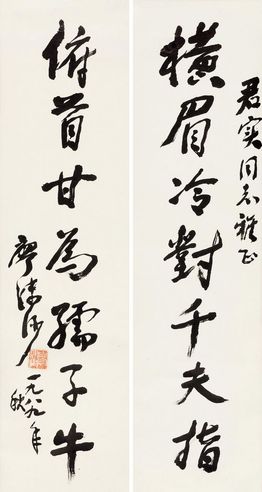 君实同志雅正
横眉冷對千夫指
俯首甘為孺子牛
廖沫沙
一九八九年
秋